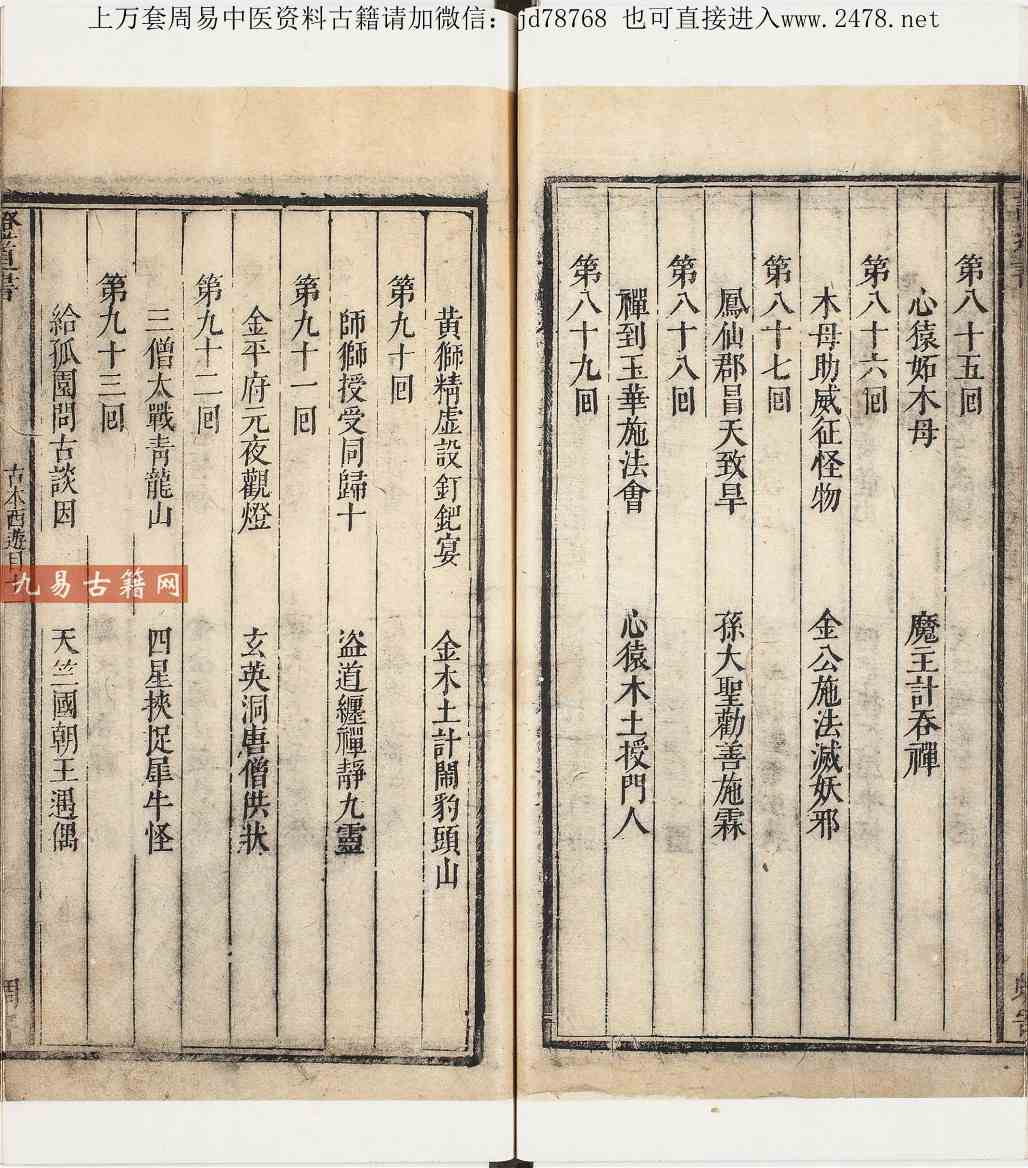 上万套周易中医资料古籍请加微信:jd78768 也可直接进入www.2478.net
第八十五回
心猿妬木母 魔王計吞禪
第八十六回
木母助威征怪物 金公施法滅妖邪
第八十七回
鳳仙郡冒天致旱 孫大聖勸善施霖
第八十八回
禪到玉華施法會 心猿木土授門人
第八十九回
黃獅精虛設釘鈀宴 金木土計鬧豹頭山
第九十回
師獅授受同歸十 盗道纏禪靜九靈
第九十一回
金平府元夜觀燈 玄英洞唐僧供狀
第九十二回
三僧大戰青龍山 四星挾捉犀牛怪
第九十三回
給孤園問古談因 天竺國朝王遇偶
證道書
古本西遊目
九易古籍网